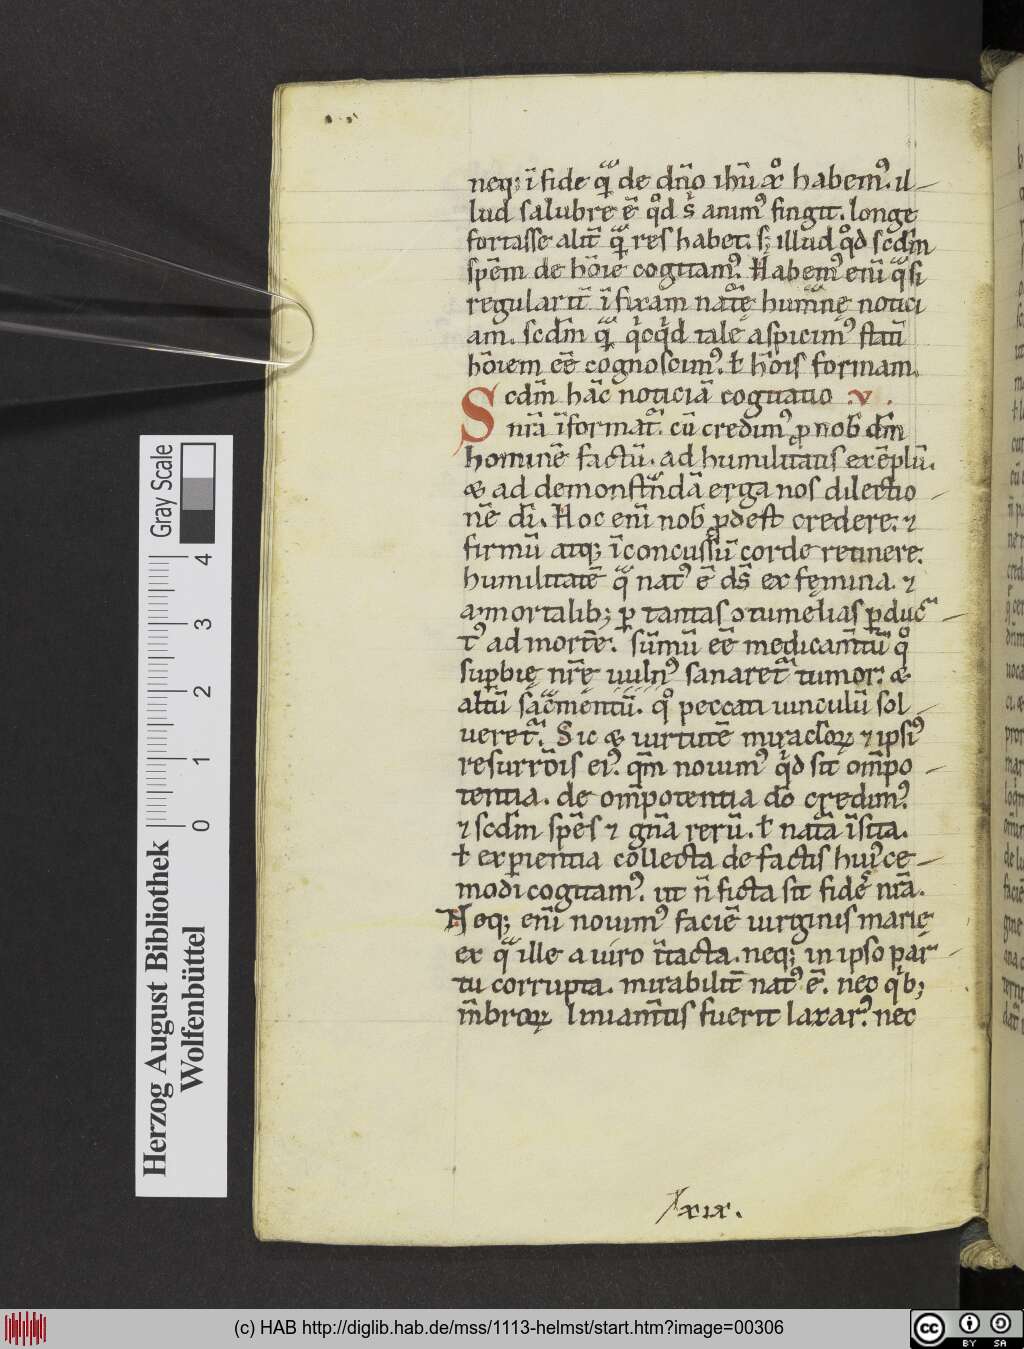 neq; ī fide q̄ de dn̄o ihū xp̄o habemꝰ. il-
lud salubre ē qd̊ s̄ animꝰ fingit. longe
fortasse alit̄ q̄ res habet. s; illud qd̊ scd̄m
spēm de hōie cogitamꝰ. Habemꝰ enī qᵃsi
regularit̄ īfixam natᵉ̨ humᵃnę notici
am. scd̄m qᵃ qͥcqͥd tale aspicimꝰ statī
hōiem eē cognoscimꝰ. ł hōis formam.
Scd̄m hāc noticiā cogitatio .v.
nr̄a īformatᷣ. cū credimꝰ ꝓ nob̄ dm̄
hominē factū. ad humilitatis exēplū.
& ad demonstᵃndā erga nos dilectio-
nē di̅. Hoc enī nob̄ ꝓdest credere. ⁊
firmū atq; īconcussū corde retinere.
humilitatē qᵃ natꝰ ē ds̄ ex fęmina. ⁊
a mortalib; ꝑ tantas ɔtumelias ꝑduc-
tꝰ ad mortē. sūmū eē medicam̄tū qͦ
supbię nr̄ę uulnꝰ sanaretᷣ tumor. &
altū sacᵃmentū. qͦ peccati uinculū sol-
ueretᷣ. Sic & uirtutē miracl̄oꝝ ⁊ ipsiꝰ
resurrōis eiꝰ. qm̄ nouimꝰ qͥd sit om̄ipo-
tentia. de om̄ipotentia dō credimꝰ.
⁊ scd̄m spēs ⁊ gn̄a rerū. ł natᵃ īsita.
ł exꝑientia collecta de factis huiꝰce-
modi cogitamꝰ. ut n̄ ficta sit fides nr̄a.
Neq; enī nouimꝰ faciē uirginis marię
ex qᵃ ille a uiro ītacta. neq; in ipso par-
tu corrupta. mirabilit̄ natꝰ ē. nec qͥb;
m̄broꝝ liniam̄tis fuerit lazarꝰ. nec
lxix.
Gray Scale
4
3
2
1
0
Herzog August Bibliothek
Wolfenbüttel
(c) HAB http://diglib.hab.de/mss/1113-helmst/start.htm?image=00306
cc BY SA